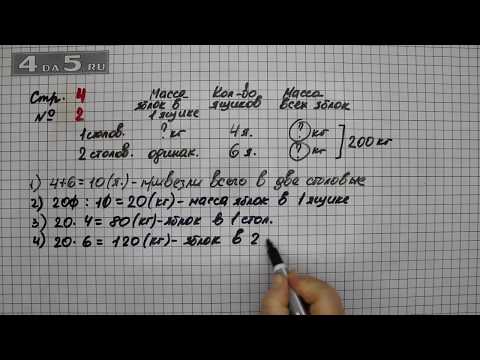 4DA5.RU
Стр. 4
№ 2
Масса яблок в 1 ящике
Кол-во ящиков
Масса всех яблок
1 столов. ? кг 4 я. ? кг
2 столов. одинак. 6 я. ? кг
200 кг
1) 4+6=10(я.)-привезли всего в две столовые
2) 200:10=20(кг)-масса яблок в 1 ящике
3) 20·4=80(кг)-яблок в 1 стол.
4) 20·6=120(кг)-яблок в 2